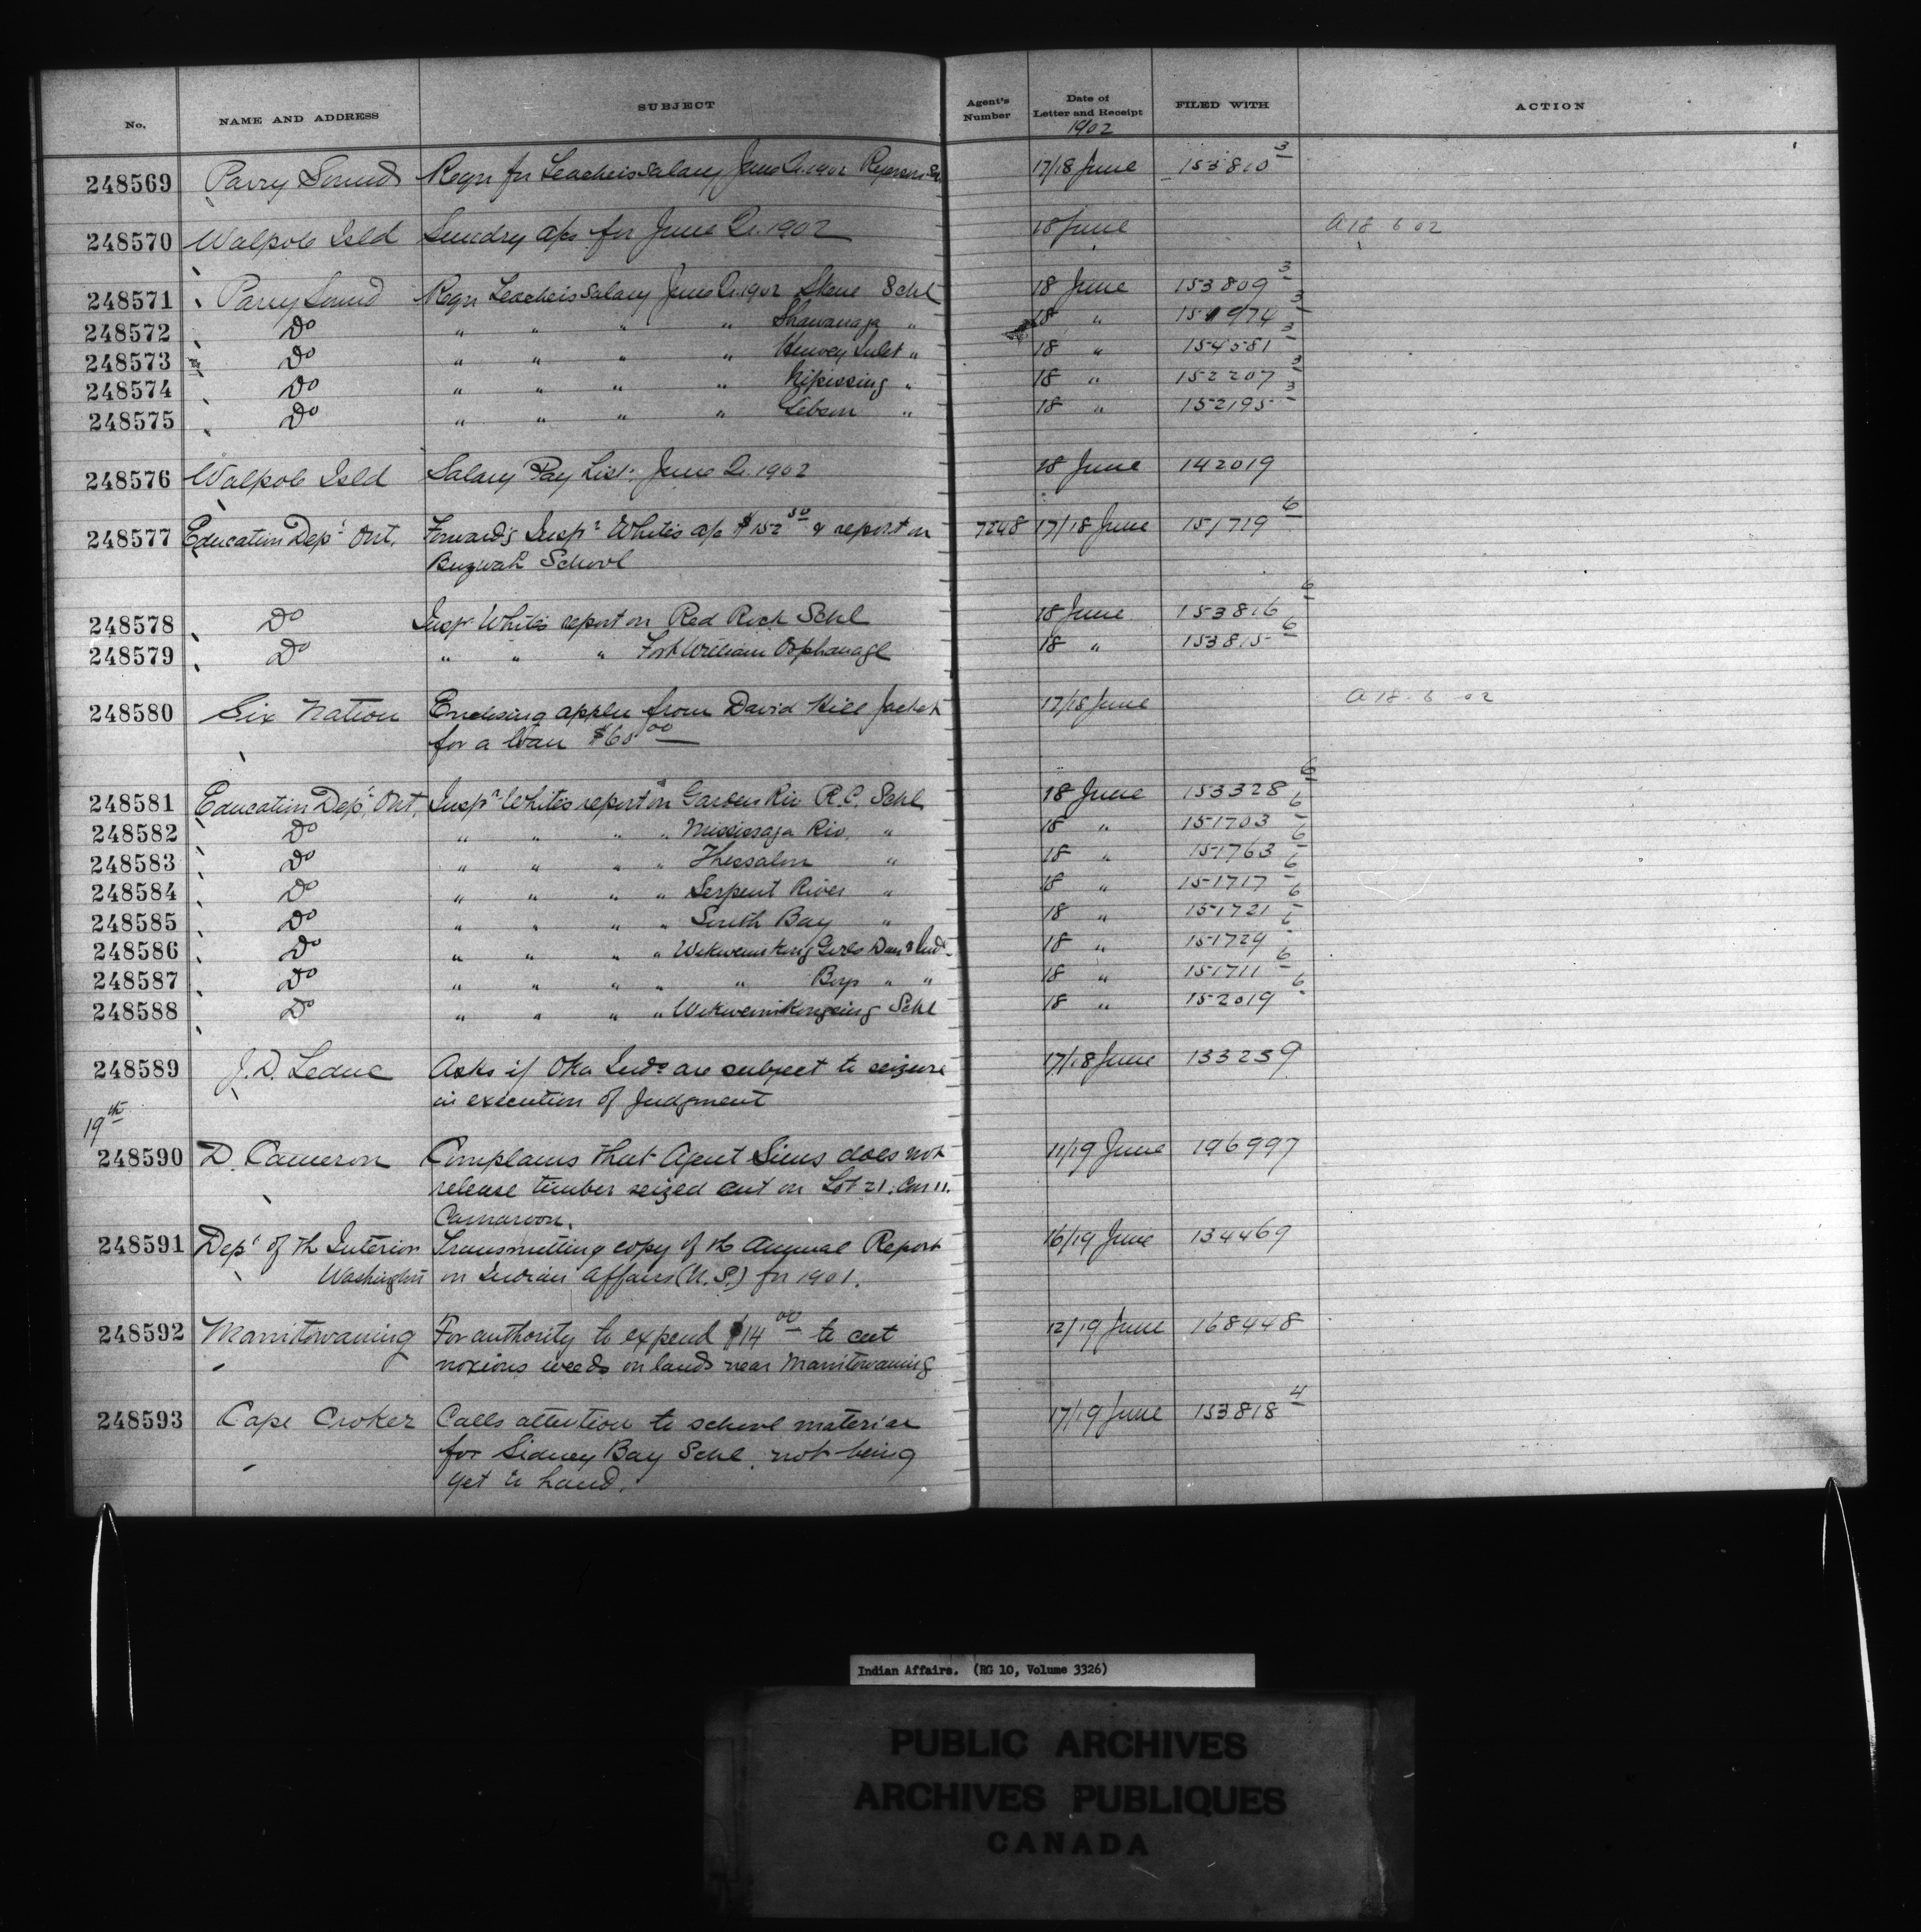 No. NAME AND ADDRESS SUBJECT Agent's Number Date of Letter and Receipt FILED WITH ACTION
1902
248569 Parry Sound Reqn for Teacheis Salary June Qr. 1902 Ryerson Sc. 17/18 June 153810 3
248570 Walpole Isld Sundry a/cs for June Qr. 1902 18 June A 18 6 02
248571 Parry Sound Reqn Teacheis Salary June Qr. 1902 Skene Schl 18 June 153809 3
248572 Do " " " " Shawanaga " 18 " 151974 3
248573 Do " " " " Henvey Inlet " 18 " 154581 3
248574 Do " " " " Nipissing " 18 " 152207 3
248575 Do " " " " Gibson " 18 " 152195 3
248576 Walpole Isld Salary Pay List. June Qr. 1902 18 June 142019
248577 Education Dept. Ont. Forwards Inspr White's a/c $152 50 & report on 7248 17/18 June 151719 6
Buzwah School
248578 Do Inspr White's report on Red Rock Schl 18 June 153816 6
248579 Do " " " Fort William Orphanage 18 " 153815 6
248580 Six Nation Enclosing appln from David Hill Jacket 17/18 June A 18 6 02
for a loan $60 00
248581 Education Dept. Ont. Inspr White's report on Garden Riv R.C. Schl 18 June 153328 6
248582 Do " " " " Mississaga Riv. " 18 " 151703 6
248583 Do " " " " Thessalon " 18 " 151763 6
248584 Do " " " " Serpent River " 18 " 151717 6
248585 Do " " " " South Bay " 18 " 151721 6
248586 Do " " " " Wikwemikong Girls Day & Ind. 18 " 151729 6
248587 Do " " " " " Boys " " 18 " 151711 6
248588 Do " " " " Wikwemikongsing Schl 18 " 152019 6
248589 J. D. Leduc Asks if Oka Inds are subject to seizure 17/18 June 133259
in execution of Judgment
19th
248590 D. Cameron Complains that Agent Sims does not 11/19 June 196997
release timber seized cut on Lot 21. Con 11.
Camaroon.
248591 Dept of th Interior Transmitting copy of th Annual Report 16/19 June 134469
Washington on Indian Affairs (U.S.) for 1901.
248592 Manitowaning For authority to expend $14 00 to cut 12/19 June 168448
noxious weeds on lands near Manitowaning
248593 Cape Croker Calls attention to school material 17/19 June 153818 4
for Sidney Bay Schl. not being
yet to hand.
Indian Affairs. (RG 10, Volume 3326)
PUBLIC ARCHIVES
ARCHIVES PUBLIQUES
CANADA